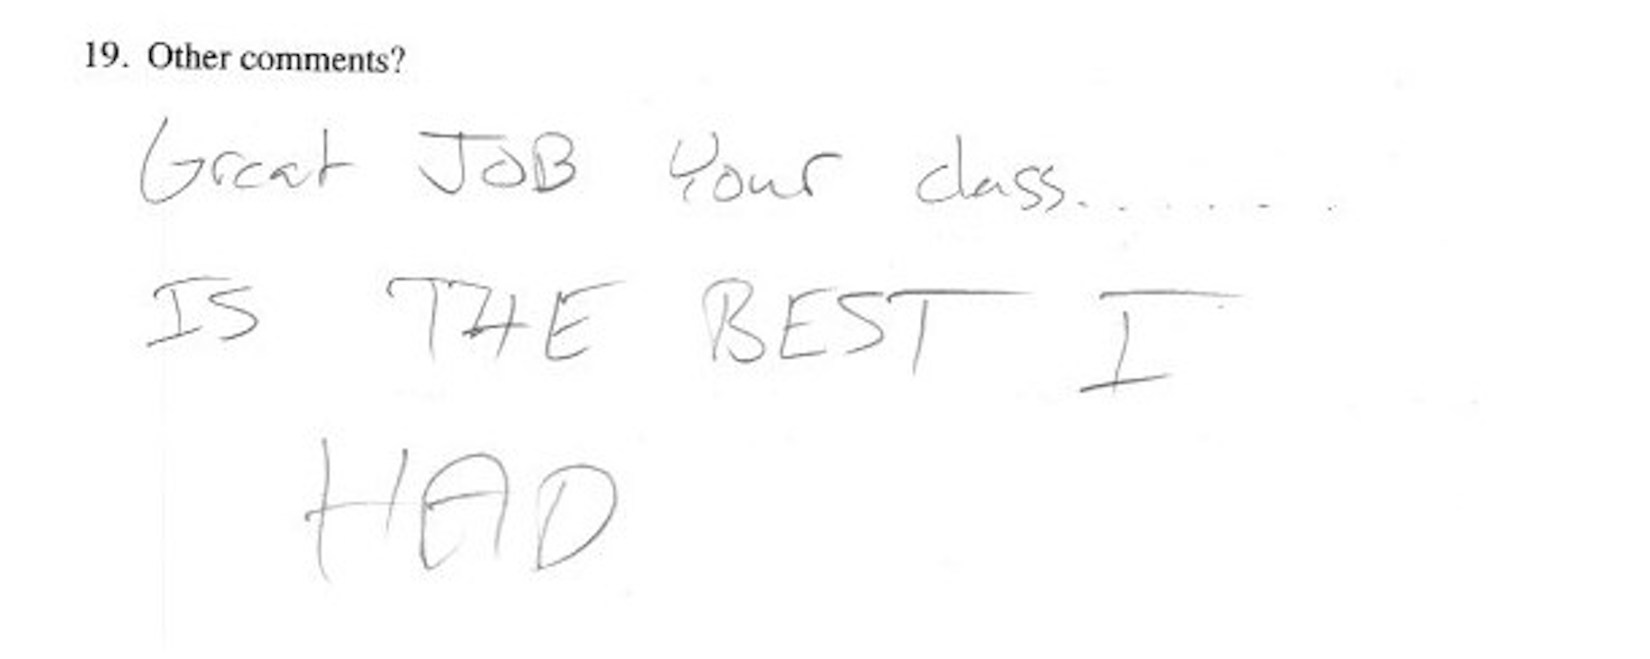 19. Other comments?
Great JOB Your class.......
IS THE BEST I
HAD